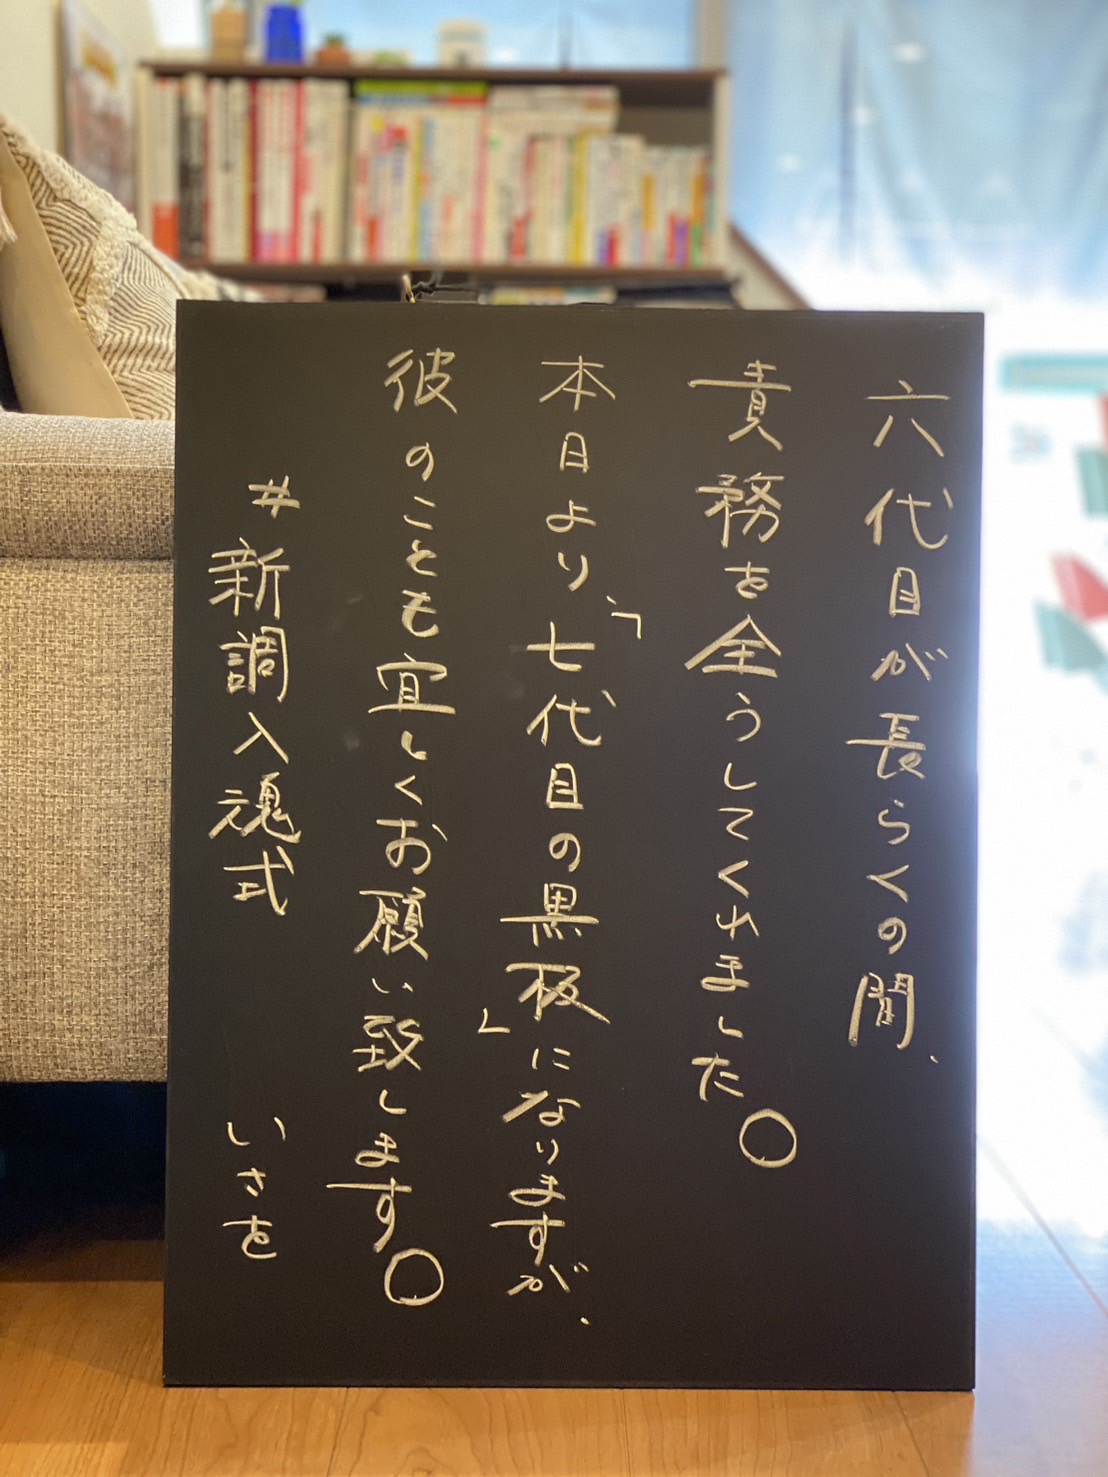 六代目が長らくの間、
責務を全うしてくれました。
本日より「七代目の黒板」になりますが、
彼のことも宜しくお願い致します。
#新調入魂式
いさを